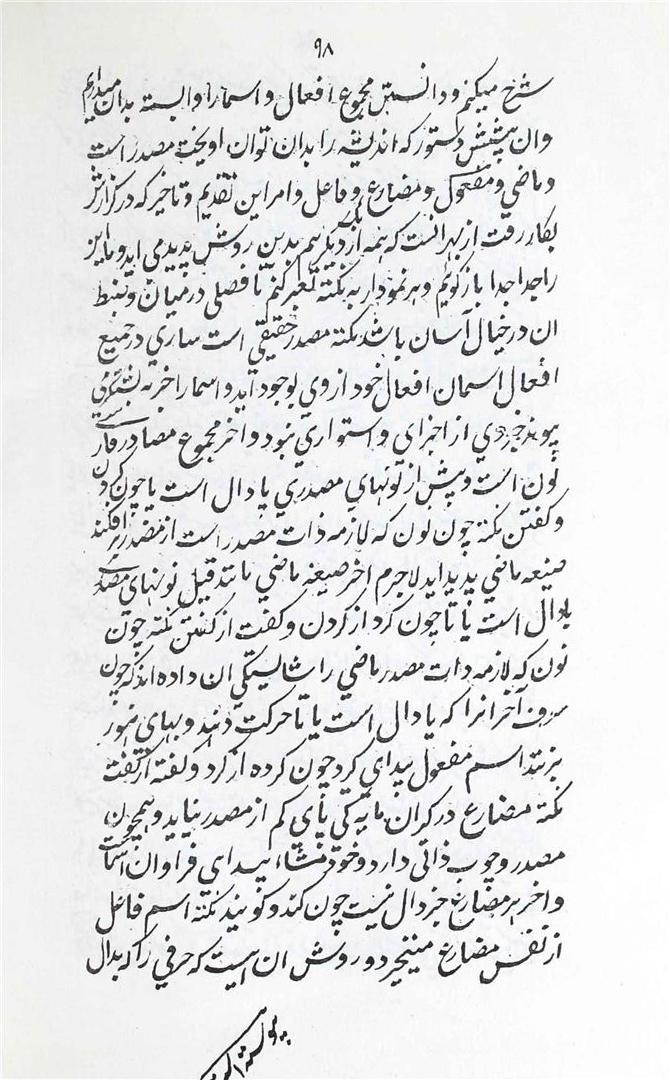 ۹۸
شرح میکنم و دانستن مجموع افعال و اسما را وابسته بدان میدانم
وان پیشش دستور که اندیشه را بدان توان اویخت مصدر است
و ماضی و مفعول و مضارع و فاعل و امر این تقدیم و تاخیر که در گزارش
بکار رفت از بهر انست که همه از دیگر بدین روش پدید می اید و ما این
را جدا جدا بازگویم و هر نمودار به نکته تعبیر کنم تا فصلی در میان و ضبط
ان در خیال آسان باشد نکته مصدر حقیقی است ساری در جمیع
افعال اسمان افعال خود از وی بوجود آید و اسما را خر به
پیوند جزوی از اجزای و استواری نبود و اخر مجموع مصادر فارسی
نون است و پیش از نونهای مصدری یا دال است یا چون کردن
و گفتن نکته چون نون که لازمه ذات مصدر است از مصدر بر افکند
صیغه ماضی پدید اید لاجرم اخر صیغه ماضی مانند قبل نونهای مصدری
یا دال است یا تا چون کرد از کردن و گفت از گفتن نکته چون
نون که لازمه ذات مصدر ماضی را شایستگی ان داده اند که چون
حرف آخر انرا که یا دال است یا تا حرکت دهند و بهای هوز
بزنند اسم مفعول پیدای گیرد چون کرده از کرد و گفته از گفت
نکته مضارع در گران مایه گی پای کم از مصدر نیاید و همچون
مصدر وجوب ذاتی دارد و خود منشاء پیدای فراوان اسماست
و اخر هر مضارع جز دال نیست چون کند و گویند نکته اسم فاعل
از نفس مضارع میخیزد و روش ان اسیت که حرفی را که بدال